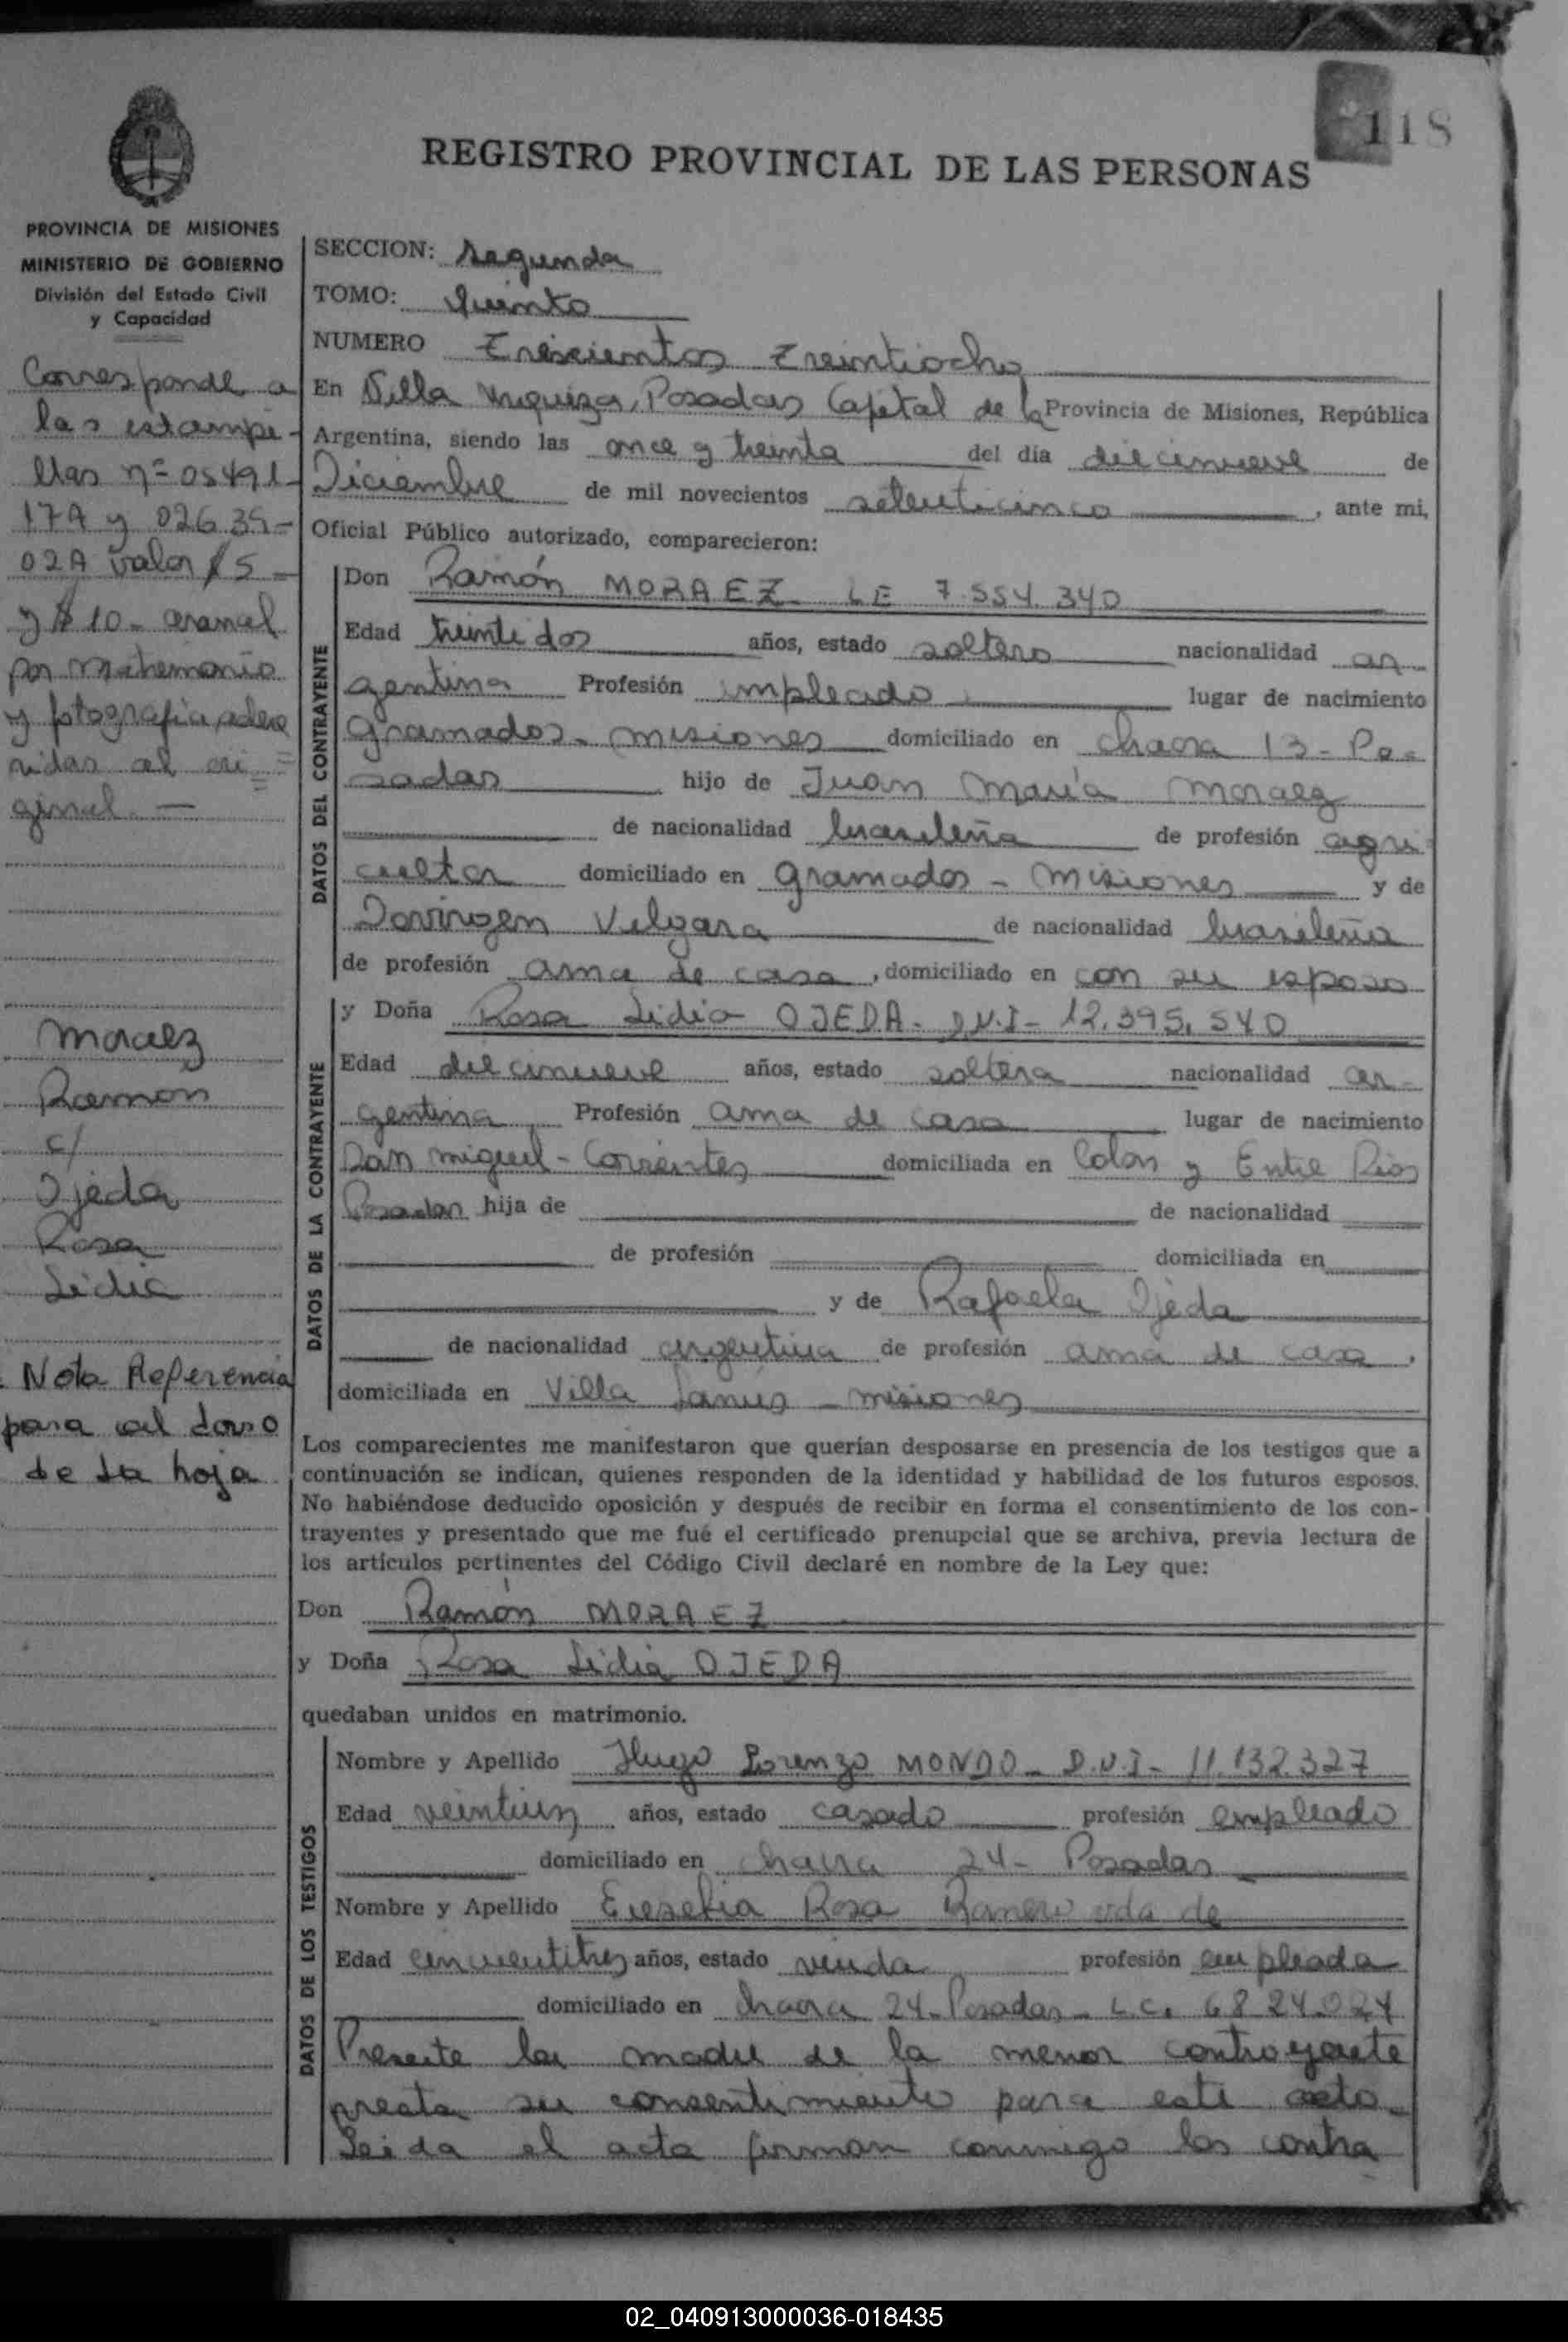 118
REGISTRO PROVINCIAL DE LAS PERSONAS
PROVINCIA DE MISIONES
MINISTERIO DE GOBIERNO
División del Estado Civil
y Capacidad
Corresponde a
las estampi-
llas nº 05491-
17A y 02639-
02A valor $ 5-
y $ 10- arancel
por matrimonio
y fotografía adhe
ridas al ori=
ginal.—
Moraez
Ramon
c/
Ojeda
Rosa
Lidia
Nota Referencia
para al dorso
de la hoja
SECCION: Segunda
TOMO: Quinto
NUMERO Trescientos treintiocho
En Villa Urquiza, Posadas Capital de la Provincia de Misiones, República
Argentina, siendo las once y treinta del día diecinueve de
Diciembre de mil novecientos setenticinco, ante mi,
Oficial Público autorizado, comparecieron:
DATOS DEL CONTRAYENTE
Don Ramón MORAEZ LE 7.554.340
Edad treintidos años, estado soltero nacionalidad ar
gentina Profesión empleado lugar de nacimiento
Gramados - Misiones domiciliado en chacra 13 - Po-
sadas hijo de Juan María Moraez
de nacionalidad brasileña de profesión agri-
cultor domiciliado en Gramados - Misiones y de
Velgara de nacionalidad brasileña
de profesión ama de casa, domiciliado en con su esposo
DATOS DE LA CONTRAYENTE
y Doña Rosa Lidia OJEDA - D.N.I - 12.395.540
Edad diecinueve años, estado soltera nacionalidad ar-
gentina Profesión ama de casa lugar de nacimiento
San Miguel - Corrientes domiciliada en Colon y Entre Rios
Posadas hija de de nacionalidad
de profesión domiciliada en
y de Rafaela Ojeda
de nacionalidad argentina de profesión ama de casa,
domiciliada en Villa Lanús - Misiones
Los comparecientes me manifestaron que querían desposarse en presencia de los testigos que a
continuación se indican, quienes responden de la identidad y habilidad de los futuros esposos.
No habiéndose deducido oposición y después de recibir en forma el consentimiento de los con-
trayentes y presentado que me fué el certificado prenupcial que se archiva, previa lectura de
los artículos pertinentes del Código Civil declaré en nombre de la Ley que:
Don Ramón MORAEZ
y Doña Rosa Lidia OJEDA
quedaban unidos en matrimonio.
DATOS DE LOS TESTIGOS
Nombre y Apellido Hugo Lorenzo MONDO - D.N.I - 11.132.327
Edad veintiun años, estado casado profesión empleado
domiciliado en chacra 24 - Posadas
Nombre y Apellido Rosa vda de
Edad cincuentitres años, estado viuda profesión empleada
domiciliado en chacra 24 - Posadas - L.C. 6824.024
Presente la madre de la menor contrayente
presta su consentimiento para este acto.
Leida el acta firman conmigo los contra
02_040913000036-018435